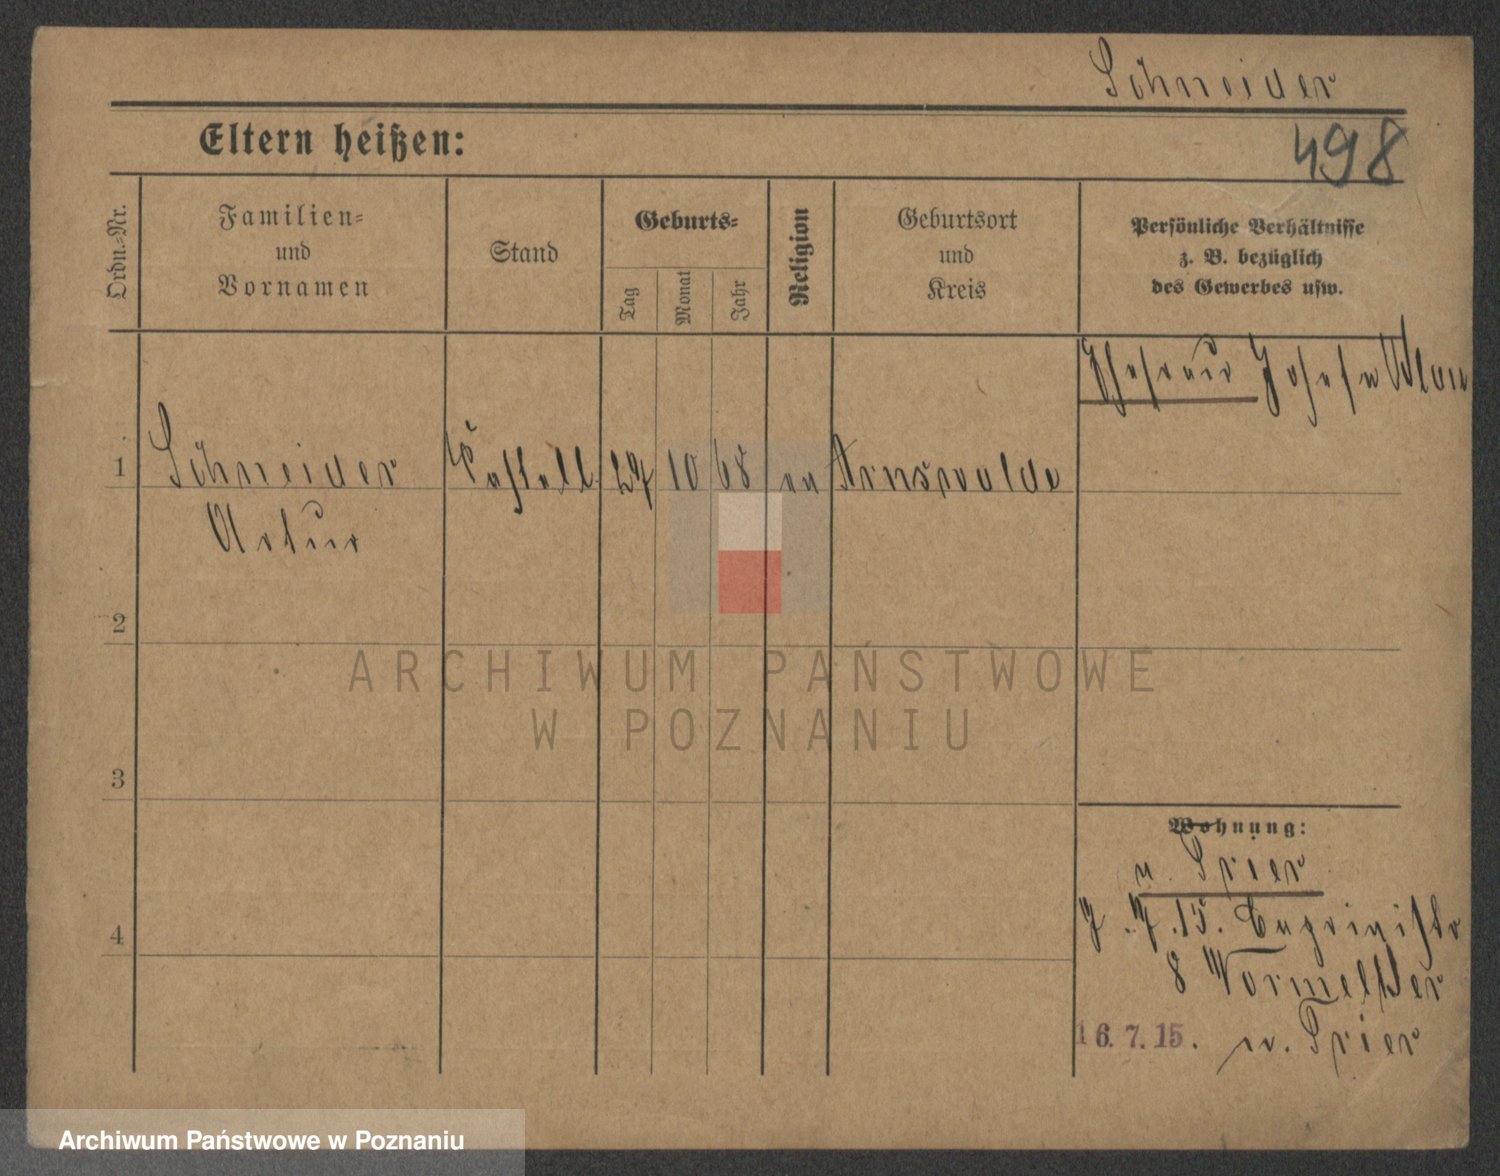 Schneider
Eltern heißen:
498
Ordn.=Nr.
Familien=
und
Vornamen
Stand
Geburts=
Tag
Monat
Jahr
Religion
Geburtsort
und
Kreis
Persönliche Verhältnisse
z. B. bezüglich
des Gewerbes usw.
Ehefrau Josefa
1
Schneider
Artur
27
10
68
ev
Arnswalde
2
3
4
Wohnung:
n. Trier
7.15.
8 Vormelker
16.7.15. n. Trier
ARCHIWUM PAŃSTWOWE
W POZNANIU
Archiwum Państwowe w Poznaniu